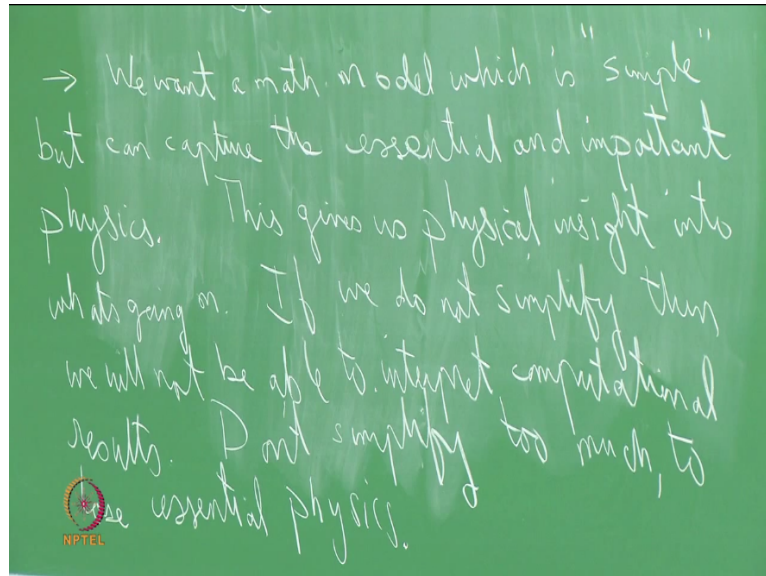 → We want a math. model which is "simple"
but can capture the essential and important
physics. This gives us physical insight into
whats going on. If we do not simplify then
we will not be able to interpret computational
results. Dont simplify too much, to
essential physics.
NPTEL